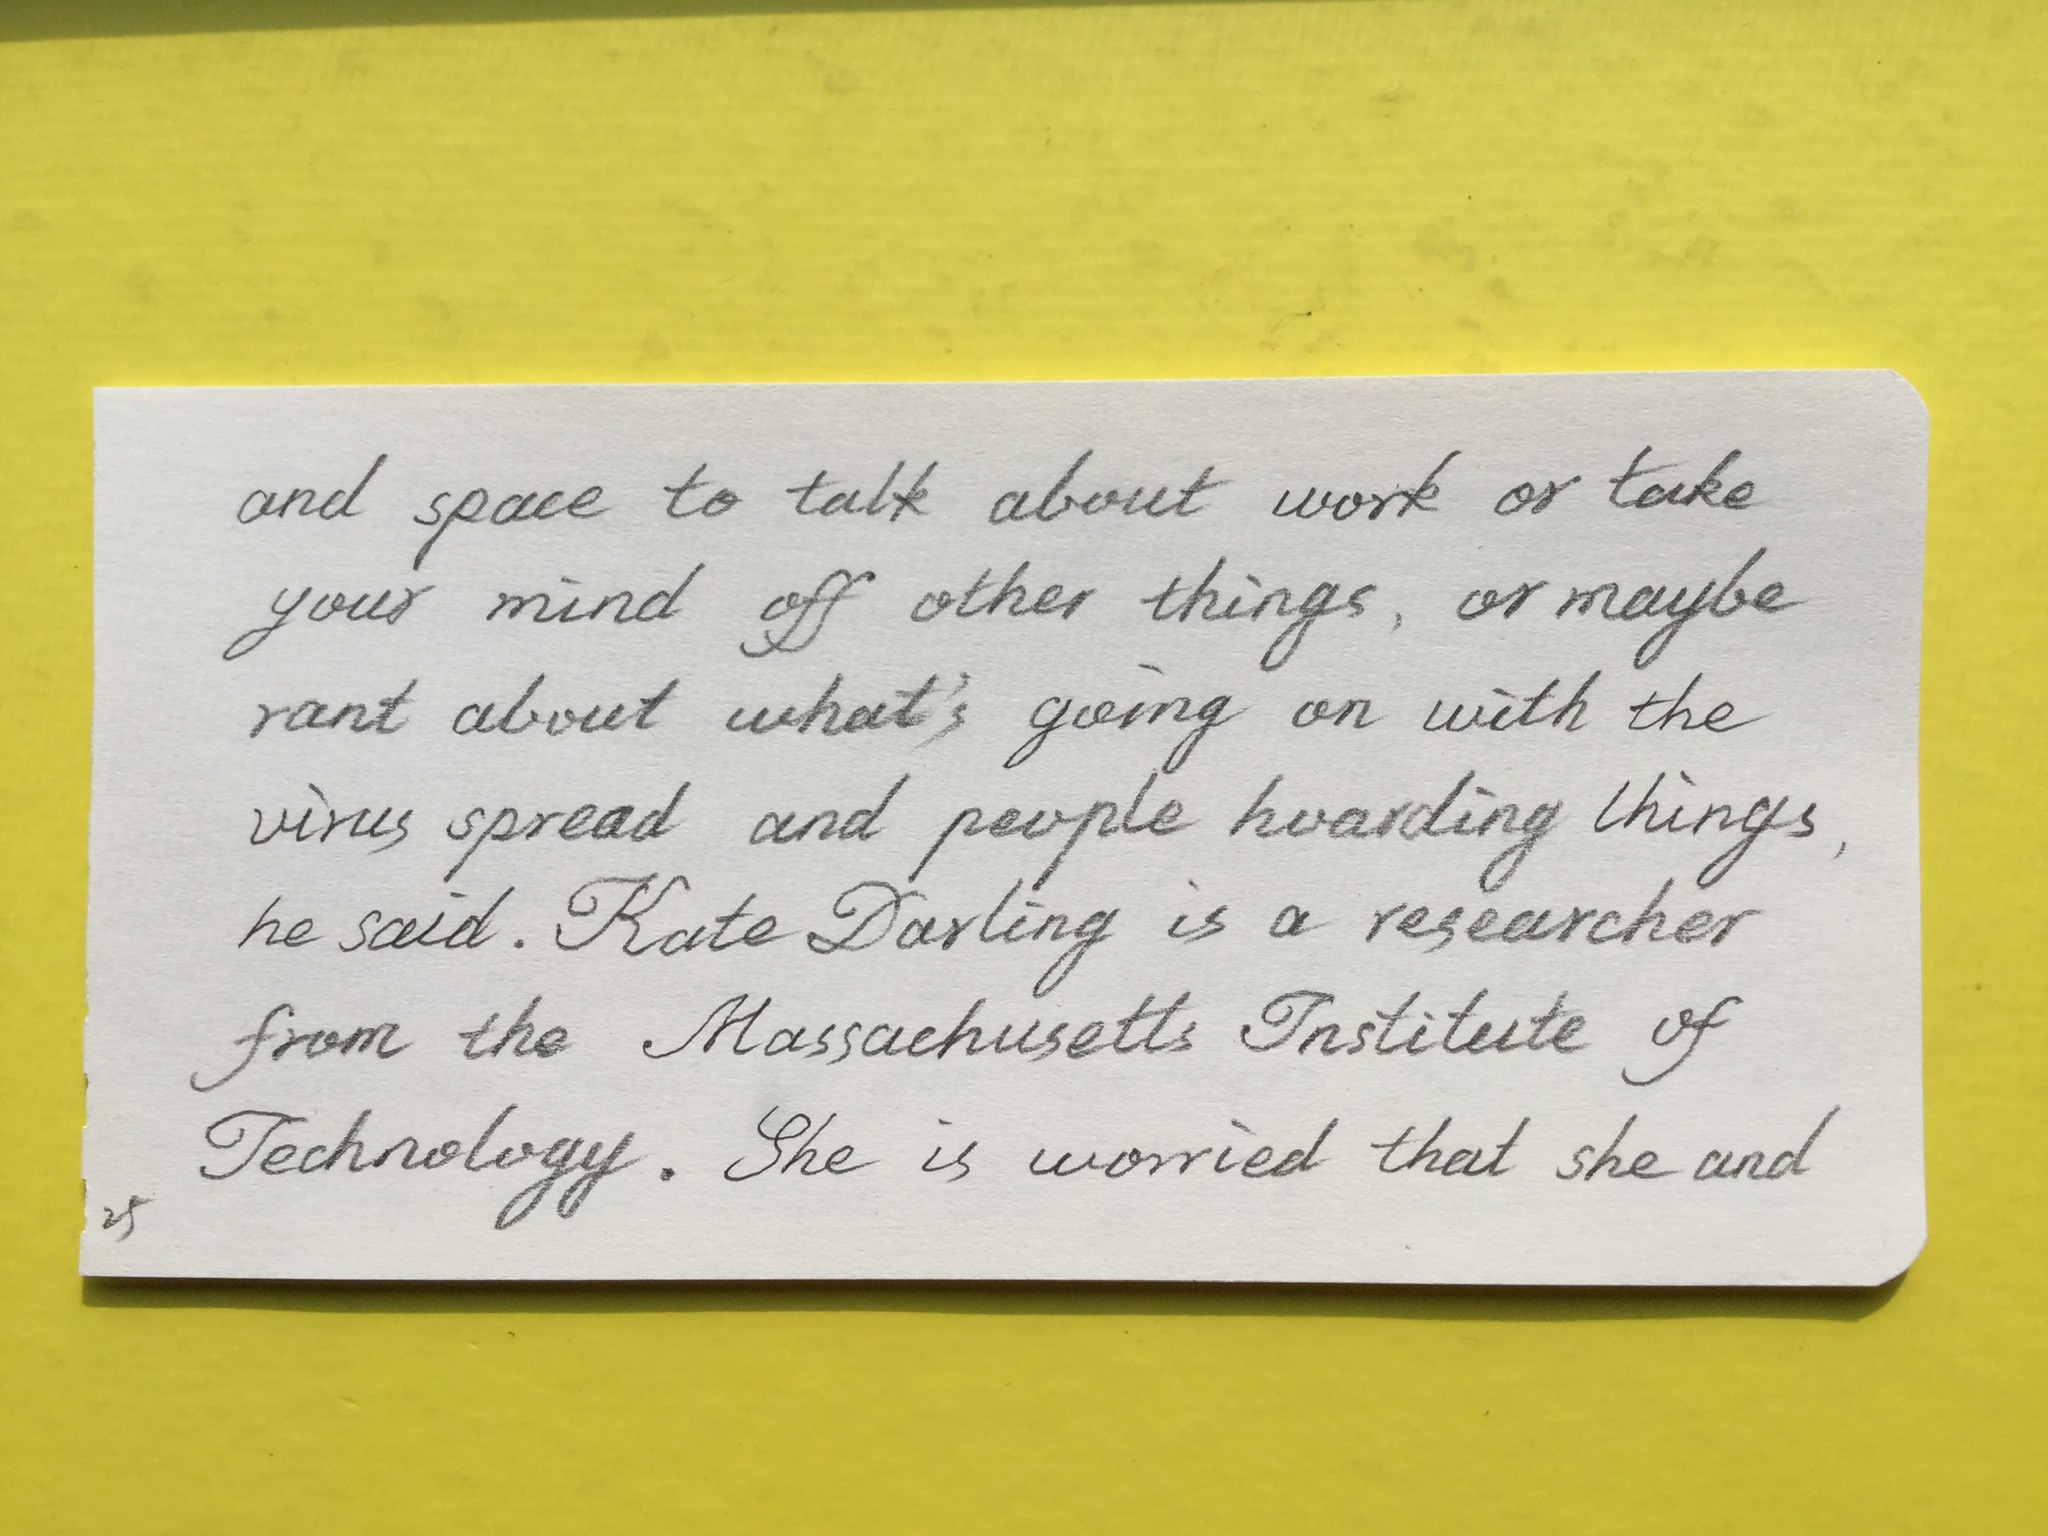 and space to talk about work or take
your mind off other things, or maybe
rant about what's going on with the
virus spread and people hoarding things,
he said. Kate Darling is a researcher
from the Massachusetts Institute of
Technology. She is worried that she and
25